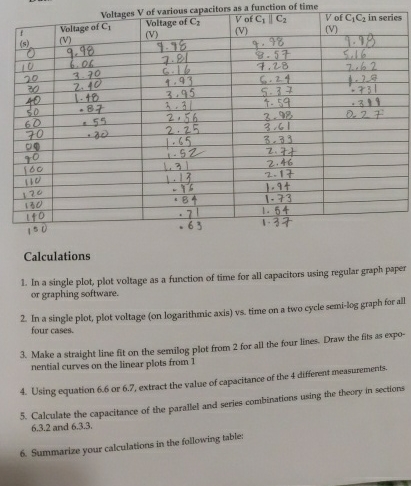 Voltages V of various capacitors as a function of time
t (s) | Voltage of C1 (V) | Voltage of C2 (V) | V of C1 || C2 (V) | V of C1C2 in series (V)
0 | 9.98 | 9.98 | 9.98 | 9.98
10 | 6.06 | 7.81 | 8.57 | 5.16
20 | 3.70 | 6.16 | 7.28 | 2.62
30 | 2.40 | 4.93 | 6.24
40 | 1.48 | 3.95 | 5.37 | .731
50 | .87 | 3.31 | 4.59
60 | .55 | 2.56 | 3.98
70 | .30 | 2.25 | 3.61
1.65 | 3.33
90 | 1.52 | 2.77
100 | 1.31 | 2.46
110 | 1.13 | 2.17
120 | 1.94
130 | .84 | 1.73
140 | .71 | 1.54
150 | .63 | 1.37
Calculations
1. In a single plot, plot voltage as a function of time for all capacitors using regular graph paper
or graphing software.
2. In a single plot, plot voltage (on logarithmic axis) vs. time on a two cycle semi-log graph for all
four cases.
3. Make a straight line fit on the semilog plot from 2 for all the four lines. Draw the fits as expo-
nential curves on the linear plots from 1
4. Using equation 6.6 or 6.7, extract the value of capacitance of the 4 different measurements.
5. Calculate the capacitance of the parallel and series combinations using the theory in sections
6.3.2 and 6.3.3.
6. Summarize your calculations in the following table: